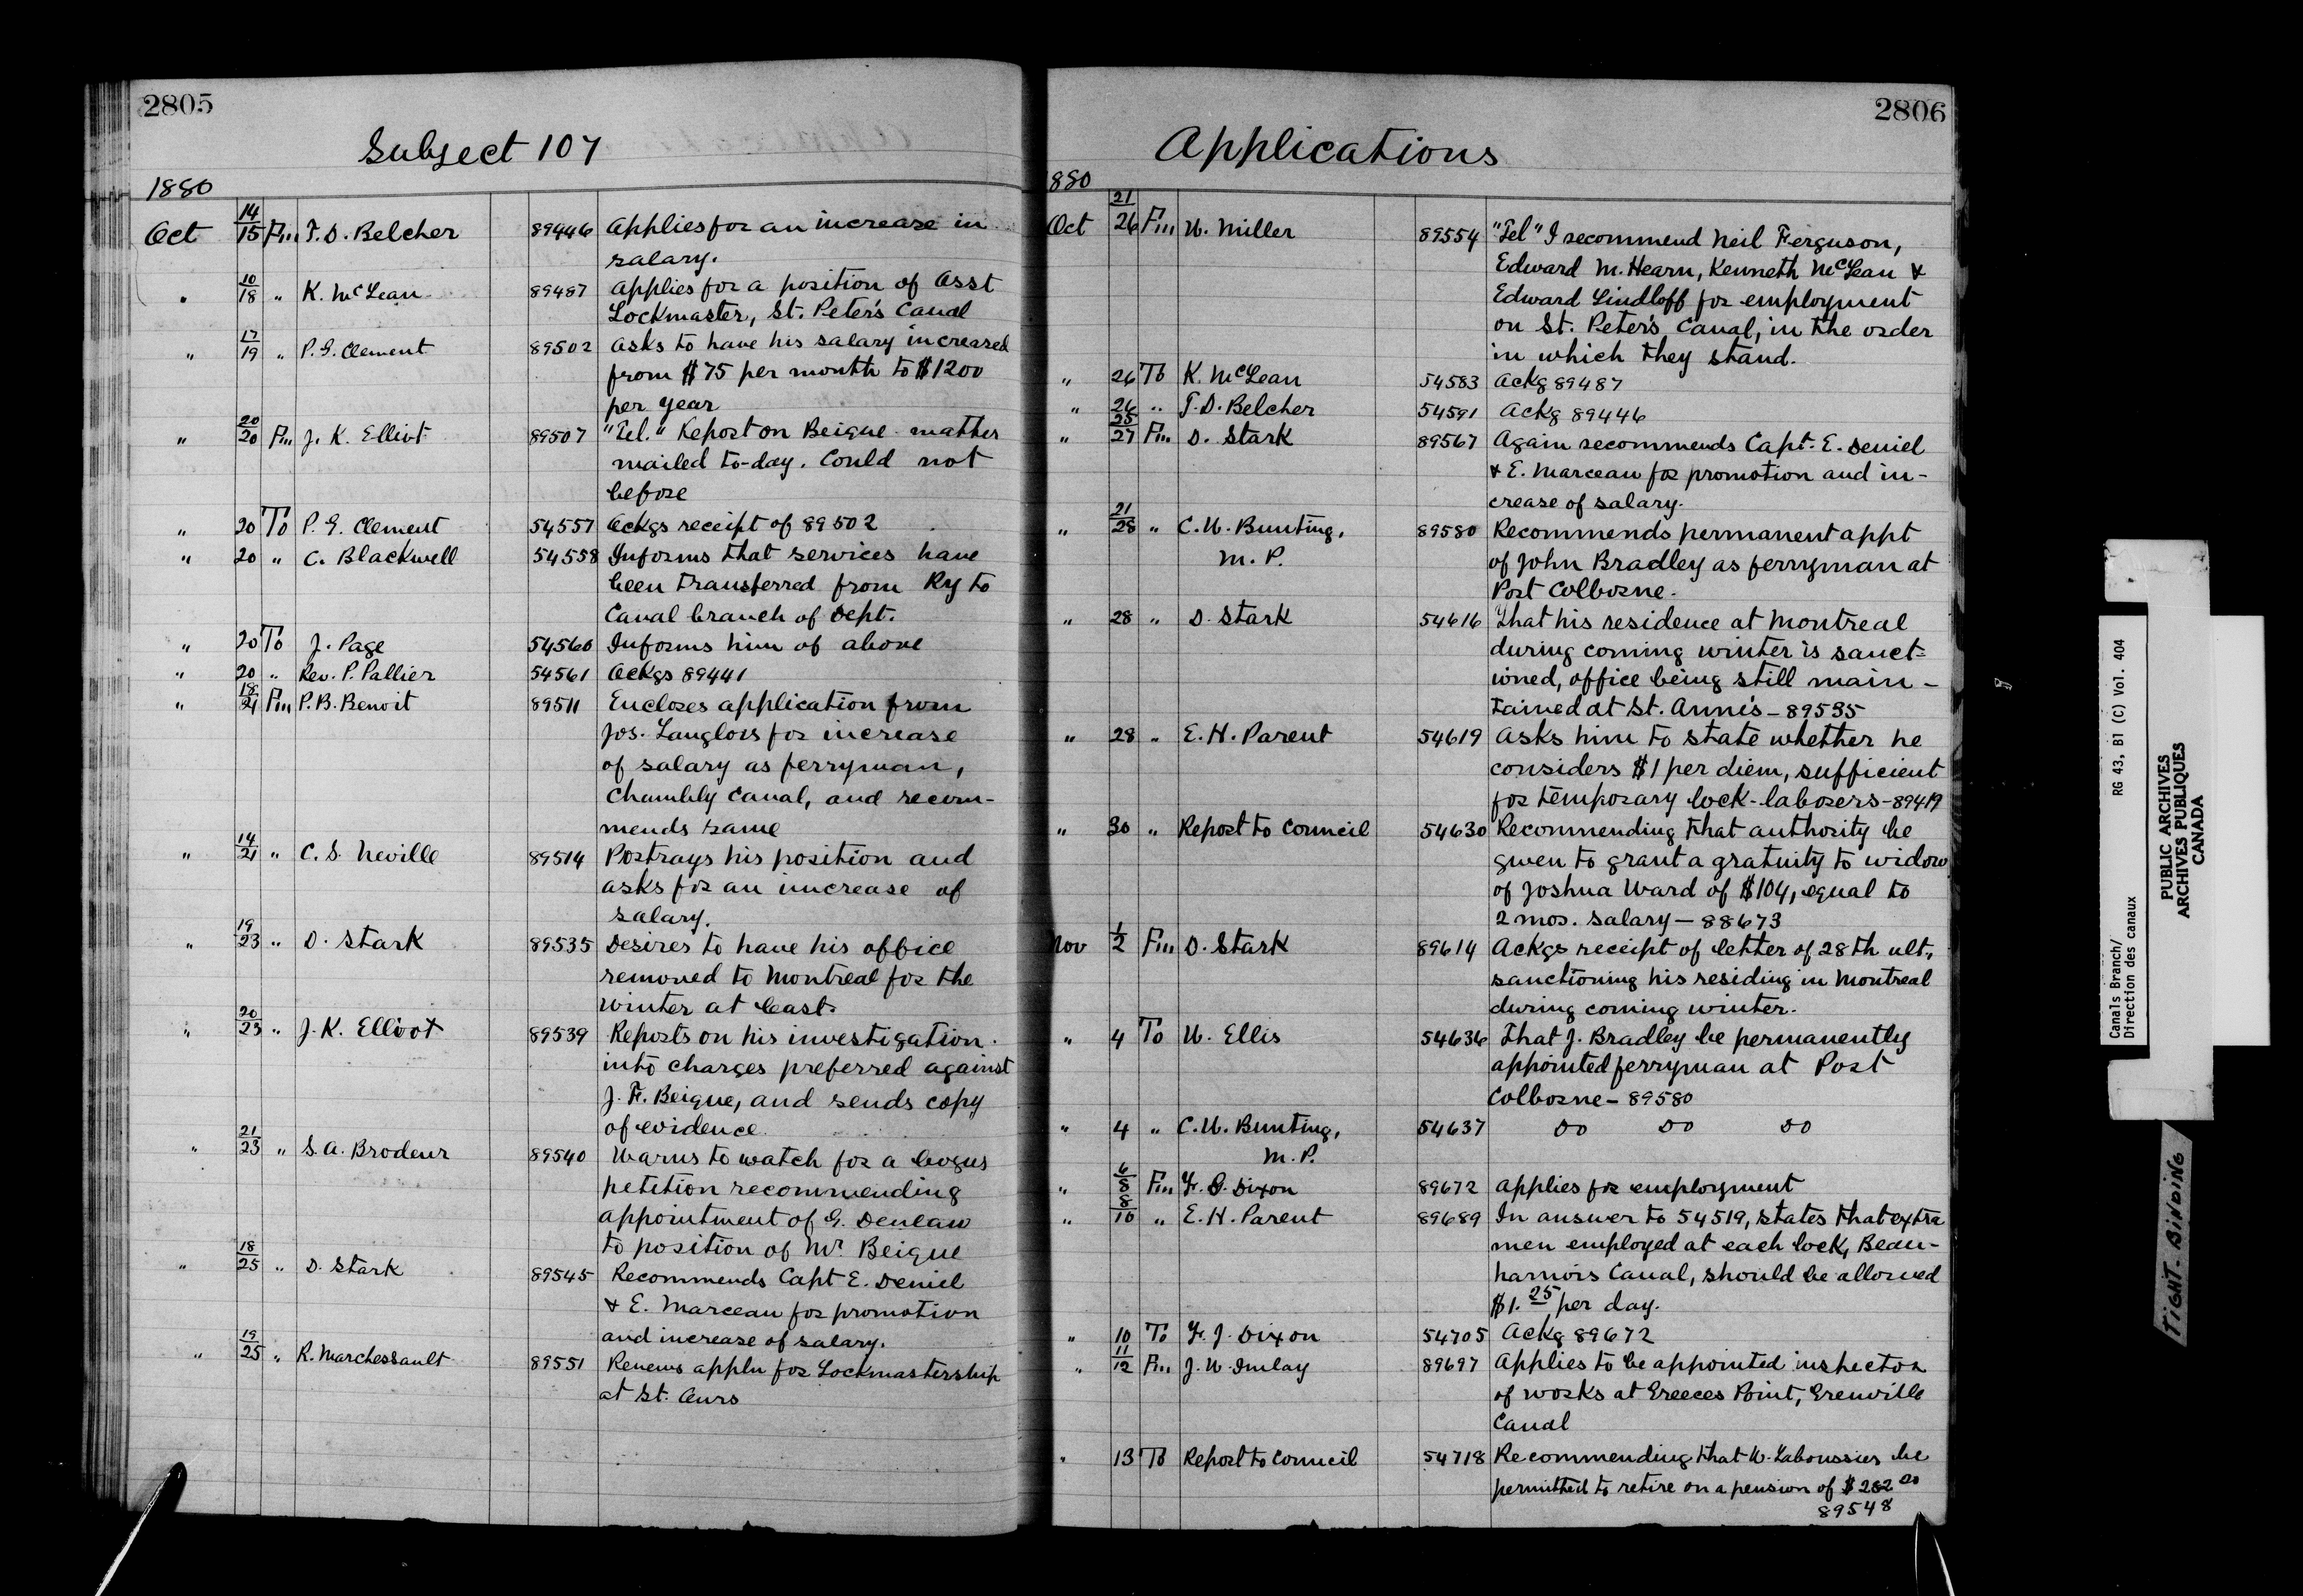 2805
Subject 107
1880
Oct 14/15 Fm T. D. Belcher 89446 Applies for an increase in
salary.
" 10/18 " K. McLean 89487 Applies for a position of Asst
Lockmaster, St. Peter's Canal
" 17/19 " P. G. Clement 89502 Asks to have his salary increased
from $75 per month to $1200
per year
" 20/20 Fm J. K. Elliot 89507 "Tel." Report on Beique matter
mailed to-day. Could not
before
" 20 To P. G. Clement 54557 Ackgs receipt of 89502
" 20 " C. Blackwell 54558 Informs that services have
been transferred from Ry to
Canal branch of Dept.
" 20 To J. Page 54560 Informs him of above
" 20 " Rev. P. Pallier 54561 Ackgs 89441
" 18/21 Fm P. B. Benoit 89511 Encloses application from
Jos. Langlois for increase
of salary as ferryman,
Chambly Canal, and recom-
mends same
" 14/21 " C. S. Neville 89514 Portrays his position and
asks for an increase of
salary.
" 19/23 " D. Stark 89535 Desires to have his office
removed to Montreal for the
winter at least.
" 20/23 " J. K. Elliot 89539 Reports on his investigation
into charges preferred against
J. F. Beique, and sends copy
of evidence
" 21/23 " S. A. Brodeur 89540 Warns to watch for a bogus
petition recommending
appointment of G.
to position of Mr. Beique
" 18/25 " D. Stark 89545 Recommends Capt E. Deniel
& E. Marceau for promotion
and increase of salary.
" 19/25 " R. Marchessault 89551 Renews appln for Lockmastership
at St. Ours
2806
Applications
1880
Oct 21/26 Fm W. Miller 89554 "Tel" I recommend Neil Ferguson,
Edward M. Hearn, Kenneth McLean &
Edward Lindloff for employment
on St. Peter's Canal, in the order
in which they stand.
" 26 To K. McLean 54583 Ackg 89487
" 26 " T. D. Belcher 54591 Ackg 89446
" 25/27 Fm D. Stark 89567 Again recommends Capt. E. Deniel
& E. Marceau for promotion and in-
crease of salary.
" 21/28 " C. W. Bunting, 89580 Recommends permanent appt
M. P. of John Bradley as ferryman at
Port Colborne.
" 28 " D. Stark 54616 That his residence at Montreal
during coming winter is sanct-
ioned, office being still main-
tained at St. Anne's - 89535
" 28 " E. H. Parent 54619 Asks him to state whether he
considers $1 per diem, sufficient
for temporary lock-laborers - 89419
" 30 " Report to Council 54630 Recommending that authority be
given to grant a gratuity to widow
of Joshua Ward of $104, equal to
2 mos. salary - 88673
Nov 1/2 Fm D. Stark 89614 Ackgs receipt of letter of 28th ult.,
sanctioning his residing in Montreal
during coming winter.
" 4 To W. Ellis 54636 That J. Bradley be permanently
appointed ferryman at Port
Colborne - 89580
" 4 " C. W. Bunting, 54637 Do Do Do
M. P.
" 6/8 Fm F. J. Dixon 89672 Applies for employment
" 8/10 " E. H. Parent 89689 In answer to 54519, states that extra
men employed at each lock, Beau-
harnois Canal, should be allowed
$1.25 per day.
" 10 To F. J. Dixon 54705 Ackg 89672
" 11/12 Fm J. W. Imlay 89697 Applies to be appointed inspector
of works at Greeces Point, Grenville
Canal
" 13 To Report to Council 54718 Recommending that W. Laboussier be
permitted to retire on a pension of $282.00
89548
Canals Branch/
Direction des canaux
RG 43, B1 (C) Vol. 404
PUBLIC ARCHIVES
ARCHIVES PUBLIQUES
CANADA
TIGHT-BINDING